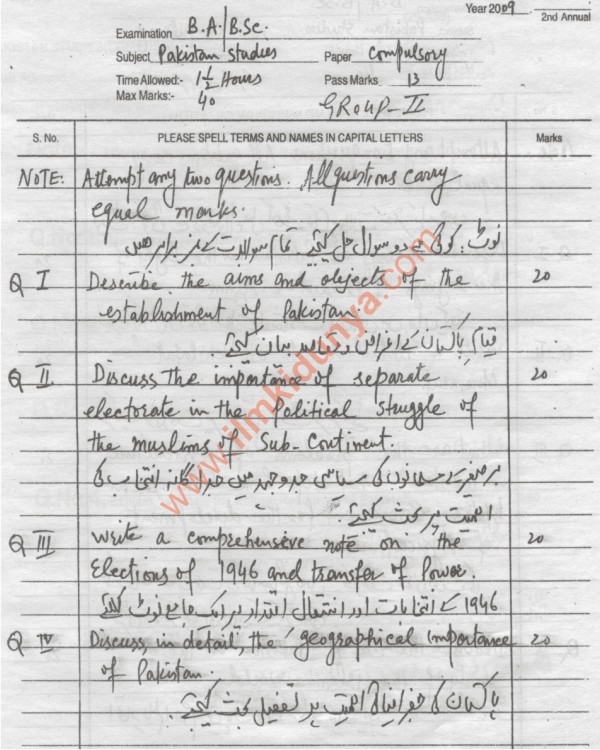 Year 2009
2nd Annual
Examination B.A./B.Sc.
Subject Pakistan Studies Paper Compulsory
Time Allowed:- 1½ Hours Pass Marks 13
Max Marks:- 40 GROUP-II
S. No. PLEASE SPELL TERMS AND NAMES IN CAPITAL LETTERS Marks
NOTE: Attempt any two questions. All questions carry
equal marks.
نوٹ: کوئی سے دو سوال حل کیجئے۔ تمام سوالات کے نمبر برابر ہیں
Q I Describe the aims and objects of the 20
establishment of Pakistan.
قیام پاکستان کے اغراض و مقاصد بیان کیجئے۔
Q II Discuss the importance of separate 20
electorate in the Political Struggle of
the muslims of Sub-Continent.
برصغیر کے مسلمانوں کی سیاسی جدوجہد میں جداگانہ انتخاب کی
اہمیت پر بحث کیجئے۔
Q III Write a comprehensive note on the 20
Elections of 1946 and transfer of Power.
1946 کے انتخابات اور انتقال اقتدار پر ایک جامع نوٹ لکھئے
Q IV Discuss, in detail, the geographical importance 20
of Pakistan.
پاکستان کی جغرافیائی اہمیت پر تفصیلی بحث کیجئے۔
www.ilmkidunya.com